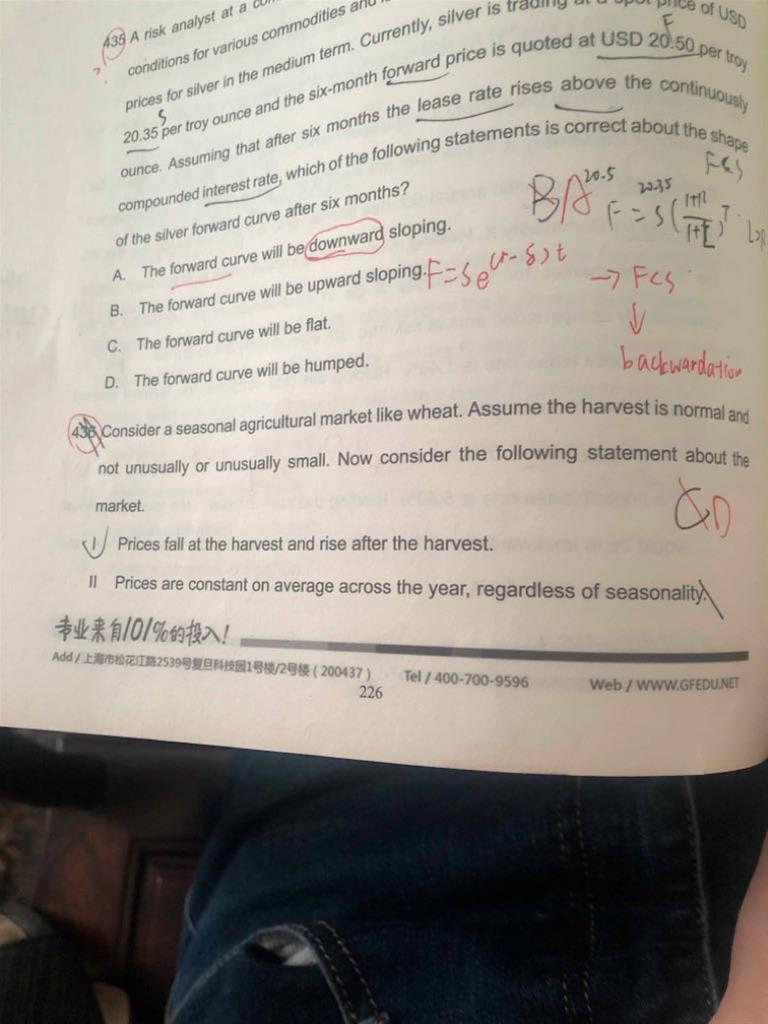 435 A risk analyst at a
conditions for various commodities and
prices for silver in the medium term. Currently, silver is trading at a spot price of USD
F
S
20.35 per troy ounce and the six-month forward price is quoted at USD 20.50 per troy
ounce. Assuming that after six months the lease rate rises above the continuously
compounded interest rate, which of the following statements is correct about the shape
of the silver forward curve after six months?
F<S
BA
20.5 20.35
F = S(
1+R
1+L
)T
A. The forward curve will be downward sloping.
B. The forward curve will be upward sloping.
F=Se(r-δ)t
→ F<S
↓
backwardation
C. The forward curve will be flat.
D. The forward curve will be humped.
436 Consider a seasonal agricultural market like wheat. Assume the harvest is normal and
not unusually or unusually small. Now consider the following statement about the
market.
D
I Prices fall at the harvest and rise after the harvest.
II Prices are constant on average across the year, regardless of seasonality.
专业来自101%的投入!
Add / 上海市松花江路2539号复旦科技园1号楼/2号楼 ( 200437 ) Tel / 400-700-9596 Web / WWW.GFEDU.NET
226